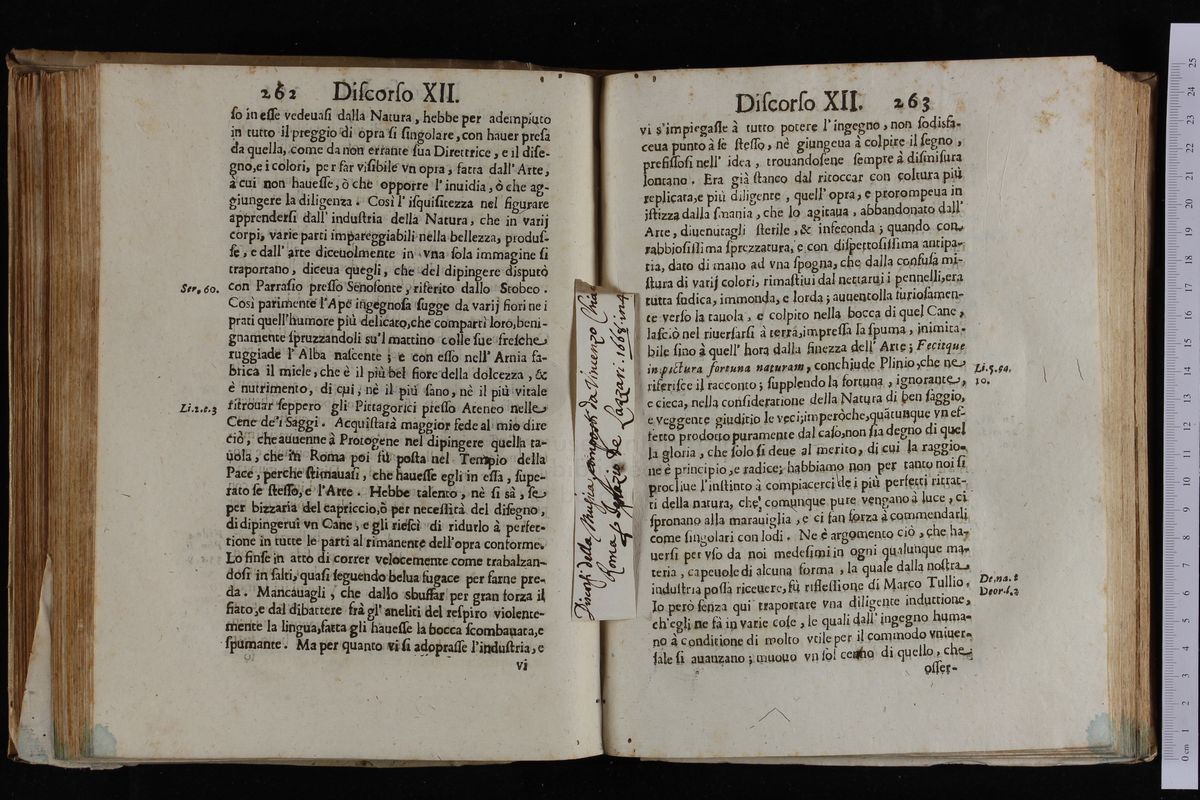 262 Diſcorſo XII.
ſo in eſſe vedeuaſi dalla Natura, hebbe per adempiuto
in tutto il preggio di opra ſi ſingolare, con hauer preſa
da quella, come da non errante ſua Direttrice, e il diſe-
gno, e i colori, per far viſibile vn opra, fatta dall' Arte,
à cui non haueſſe, ò che opporre l' inuidia, ò che ag-
giungere la diligenza. Così l' iſquiſitezza nel figurare
apprenderſi dall' induſtria della Natura, che in varij
corpi, varie parti impareggiabili nella bellezza, produſ-
ſe, e dall' arte diceuolmente in vna ſola immagine ſi
traportano, diceua quegli, che del dipingere diſputò
Ser. 60. con Parraſio preſſo Senofonte, riferito dallo Stobeo.
Così parimente l'Ape ingegnoſa ſugge da varij fiori ne i
prati quell'humore più delicato, che compartì loro, beni-
gnamente ſpruzzandoli ſu'l mattino colle ſue freſche
ruggiade l' Alba naſcente; e con eſſo nell' Arnia fa-
brica il miele, che è il più bel fiore della dolcezza, &
è nutrimento, di cui, nè il più ſano, nè il più vitale
Li. 2. c. 3 ritrouar ſeppero gli Pittagorici preſſo Ateneo nelle
Cene de'i Saggi. Acquiſtarà maggior fede al mio dire
ciò, che auuenne à Protogene nel dipingere quella ta-
uola, che in Roma poi fù poſta nel Tempio della
Pace, perche ſtimauaſi, che haueſſe egli in eſſa, ſupe-
rato ſe ſteſſo, e l'Arte. Hebbe talento, nè ſi sà, ſe
per bizzaria del capriccio, ò per neceſſità del diſegno,
di dipingerui vn Cane, e gli rieſcì di ridurlo à perfet-
tione in tutte le parti al rimanente dell'opra conforme.
Lo finſe in atto di correr velocemente come trabalzan-
doſi in ſalti, quaſi ſeguendo belua fugace per farne pre-
da. Mancauagli, che dallo sbuffar per gran forza il
fiato, e dal dibattere frà gl' aneliti del reſpiro violente-
mente la lingua, fatta gli haueſſe la bocca ſcombauata, e
ſpumante. Ma per quanto vi ſi adopraſſe l'induſtria, e
vi
Diſcorſo XII. 263
vi s'impiegaſſe à tutto potere l' ingegno, non ſodisfa-
ceua punto à ſe ſteſſo, nè giungeua à colpire il ſegno,
prefiſſoſi nell' idea, trouandoſene ſempre à diſmiſura
lontano. Era già ſtanco dal ritoccar con coltura più
replicata, e più diligente, quell' opra, e prorompeua in
iſtizza dalla ſmania, che lo agitaua, abbandonato dall'
Arte, diuenutagli ſterile, & infeconda; quando con
rabbioſiſſima ſprezzatura, e con diſpettoſiſſima antipa-
tia, dato di mano ad vna ſpogna, che dalla confuſa mi-
ſtura di varij colori, rimaſtiui dal nettarui i pennelli, era
tutta ſudica, immonda, e lorda; auuentolla furioſamen-
te verſo la tauola, e colpito nella bocca di quel Cane,
laſciò nel riuerſarſi à terra, impreſſa la ſpuma, inimita-
bile ſino à quell' hora dalla finezza dell' Arte; Fecitque
in pictura fortuna naturam, conchiude Plinio, che ne Li. 5. 54.
riferiſce il racconto; ſupplendo la fortuna, ignorante, 10.
e cieca, nella conſideratione della Natura di ben ſaggio,
e veggente giuditio le veci; imperòche, quãtunque vn ef-
fetto prodotto puramente dal caſo, non ſia degno di quel
la gloria, che ſolo ſi deue al merito, di cui la raggio-
ne è principio, e radice; habbiamo non per tanto noi ſi
procliue l'inſtinto à compiacerci de i più perfetti ritrat-
ti della natura, che comunque pure vengano à luce, ci
ſpronano alla marauiglia, e ci fan forza à commendarli
come ſingolari con lodi. Ne è argomento ciò, che ha-
uerſi per vſo da noi medeſimi in ogni qualunque ma-
teria, capeuole di alcuna forma, la quale dalla noſtra De. na. 2
induſtria poſſa riceuere, fù rifleſſione di Marco Tullio. Deor. l. 2
Io però ſenza qui traportare vna diligente induttione,
ch'egli ne fà in varie coſe, le quali dall' ingegno huma-
no à conditione di molto vtile per il commodo vniuer-
ſale ſi auanzano; muouo vn ſol cenno di quello, che
oſſer-
Discorsi della Musica composti da Vincenzo Chia
Roma p Ignazio de Lazzari. 1668. in 4